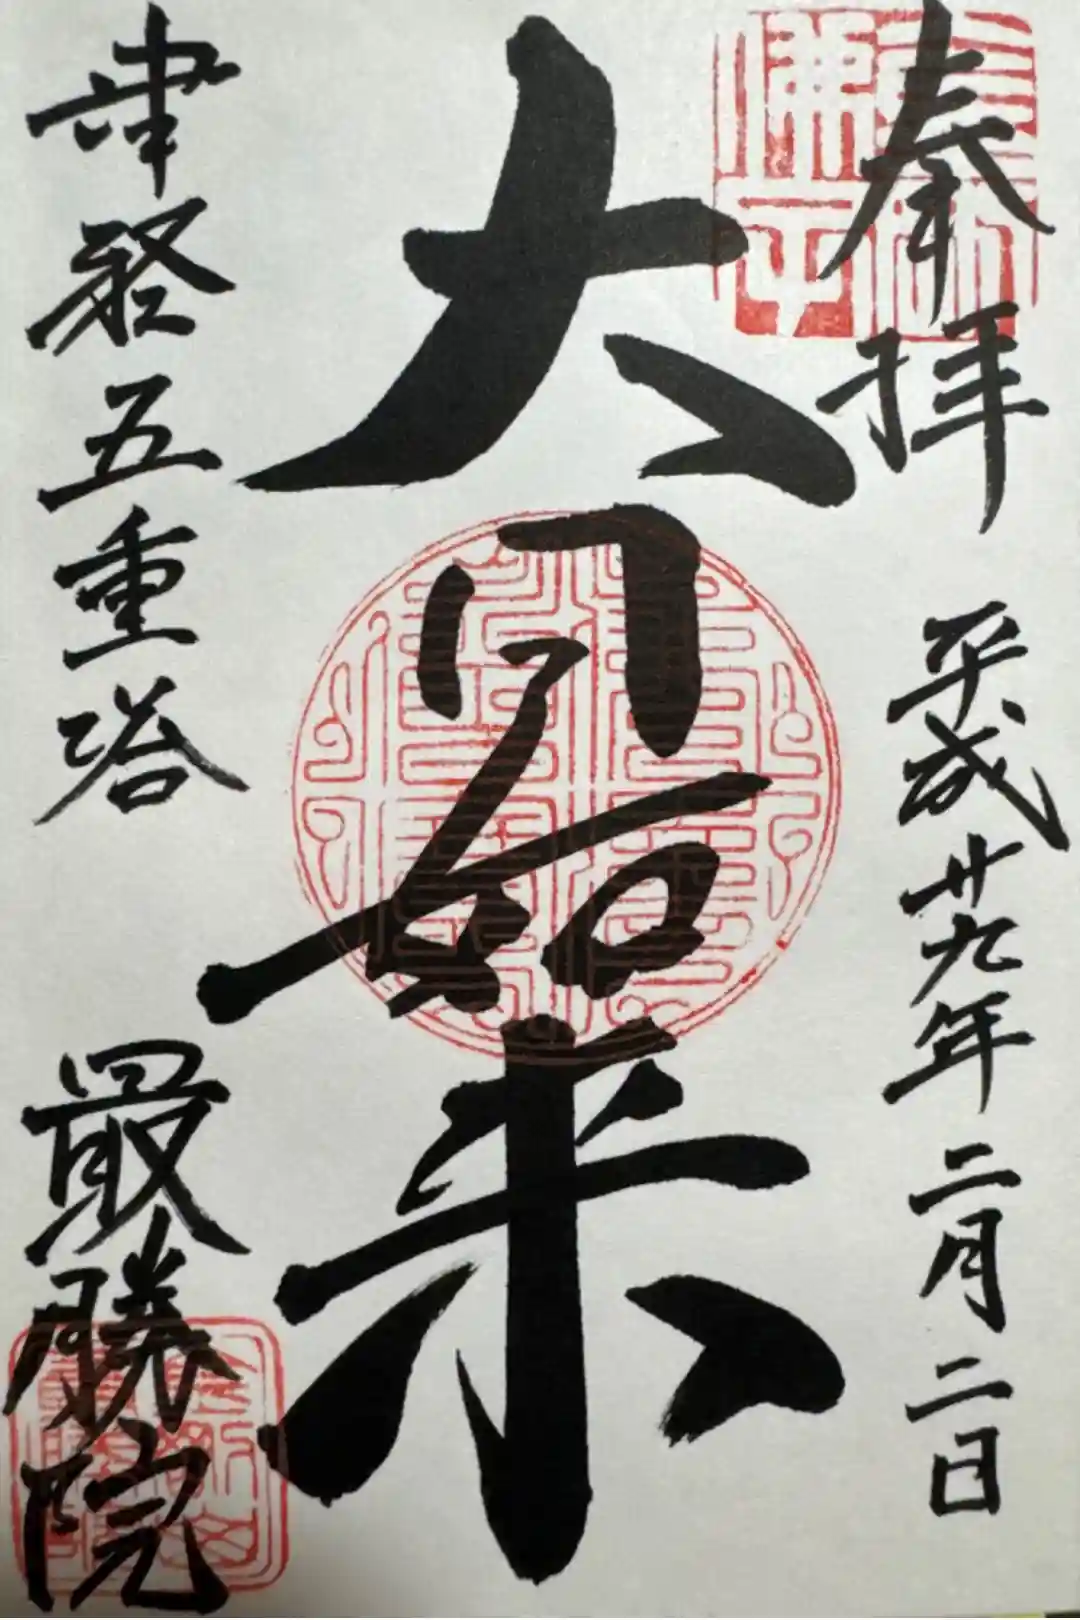 奉拝 平成廿九年 二月 二日
大日如来
津軽五重塔 最勝院